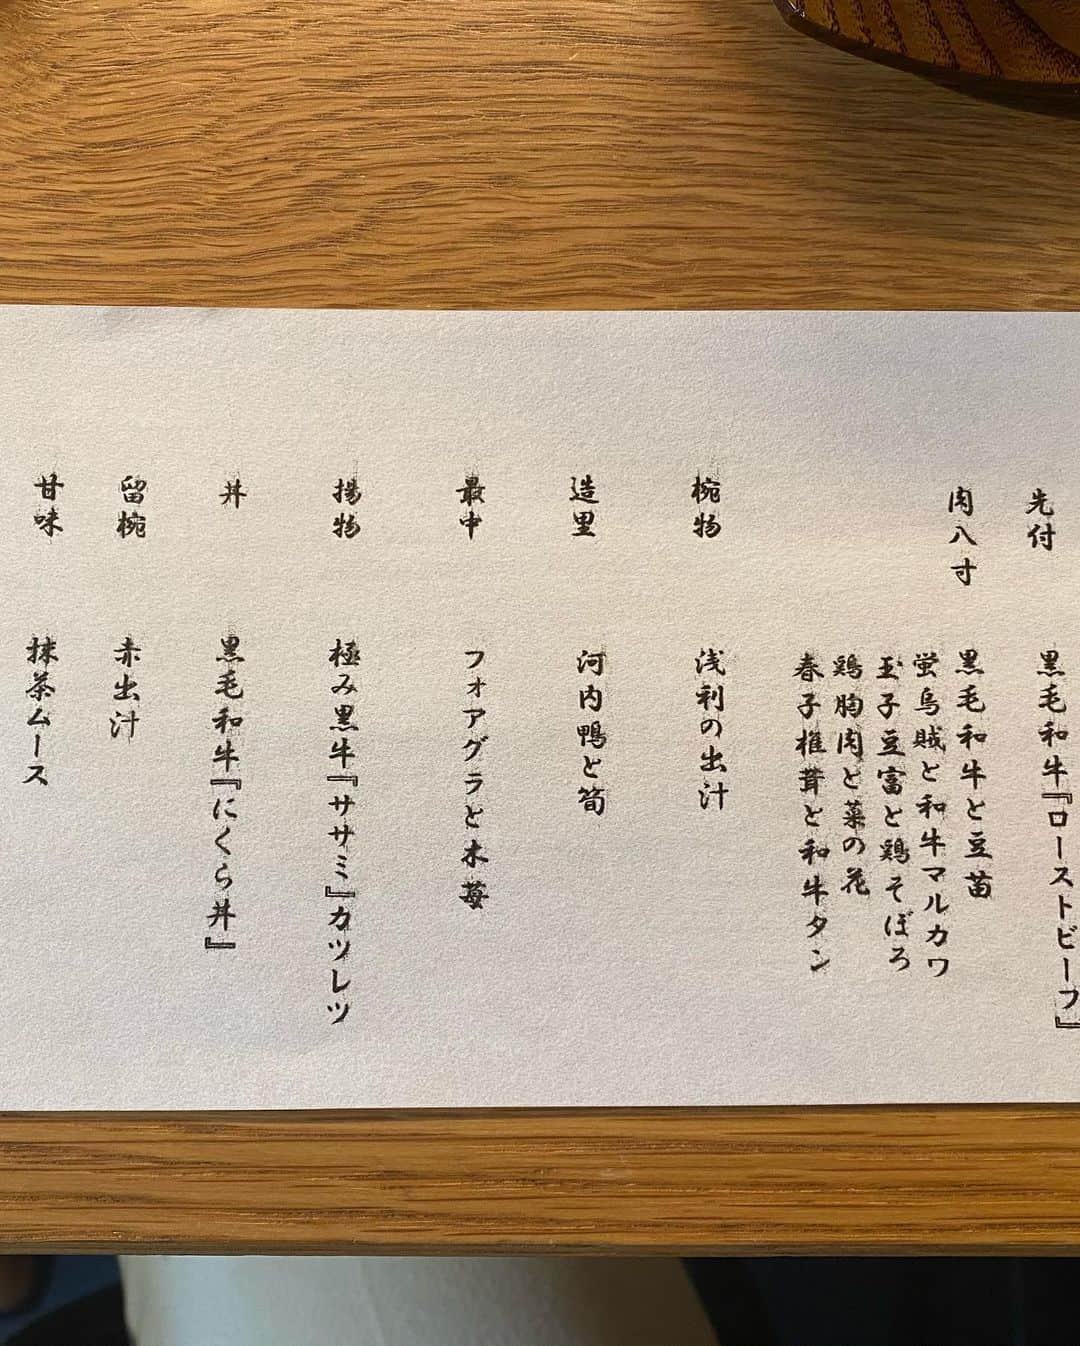 先付 黒毛和牛『ローストビーフ』
肉八寸 黒毛和牛と豆苗
蛍烏賊と和牛マルカワ
玉子豆富と鶏そぼろ
鶏胸肉と菜の花
春子椎茸と和牛タン
椀物 浅利の出汁
造里 河内鴨と筍
最中 フォアグラと木苺
揚物 極み黒牛『ササミ』カツレツ
丼 黒毛和牛『にくら丼』
留椀 赤出汁
甘味 抹茶ムース